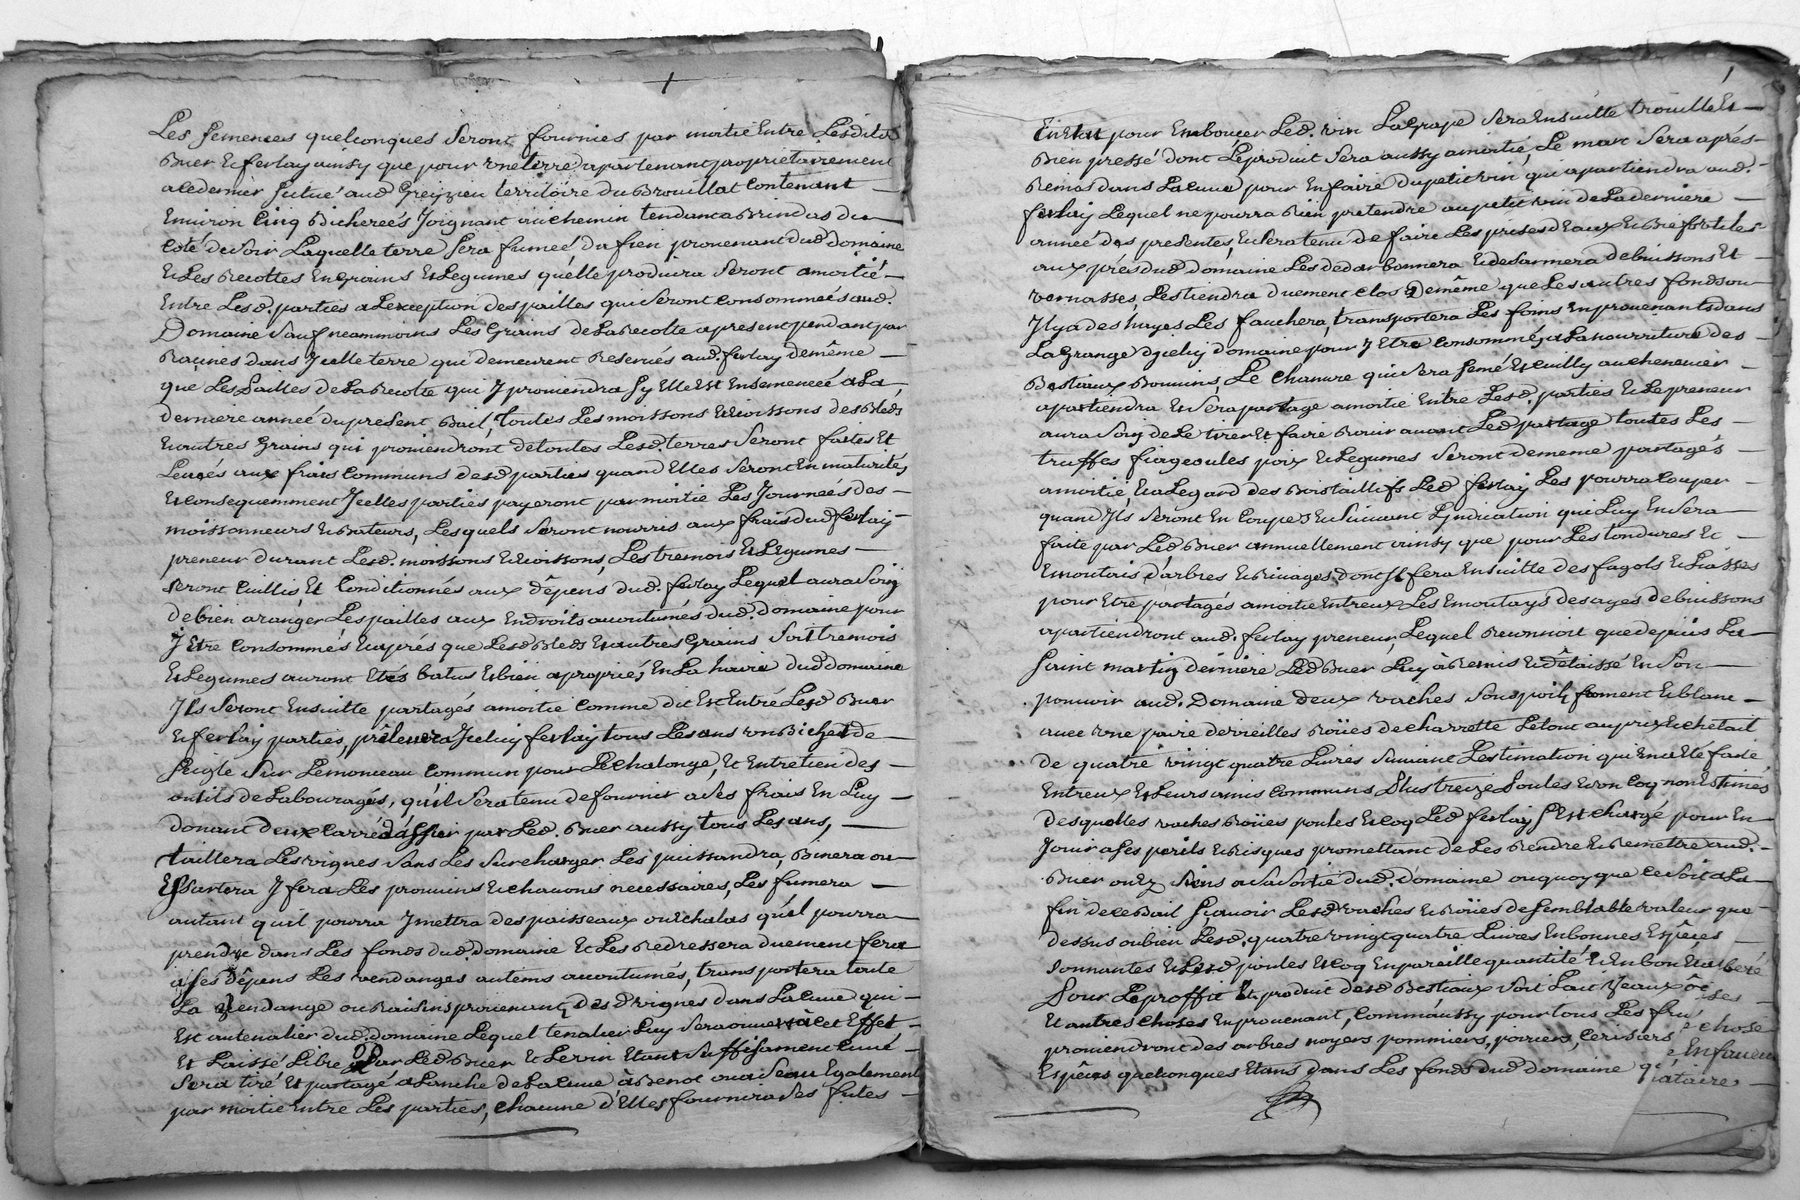 Les semences quelconques seront fournies par moitié Entre Lesdits
Buer Et ferlay ainsy que pour une terre apartenant proprietairement
a Ledernier scitué aud Greyzieu territoire du Brouillat Contenant
Environ Cinq Bicherees Joignant au chemin tendant a Brindas du
Coté de soir Laquelle terre sera fumeé du fien provenant dud Domaine
Et Les Recottes En grains Et Legumes qu'elle produira seront amoitié
Entre Lesd. parties a Lexception des pailles qui seront consommeés aud.
Domaine sauf neammoins Les Grains de La Recolte apresent pendant par
Racines dans Jcelle terre qui demeurent Reservés aud. ferlay demême
que Les Pailles de La Recolte qui J proviendra sy Elle Est Ensemenceé a La
derniere anneé du present Bail, Toutes Les moissons Et Moissons des Bleds
Et autres Grains qui proviendront de toutes Lesd. terres seront faites Et
Levés aux frais Communs desd parties quand Elles seront En maturités,
Et consequemment Jcelles parties payeront par moitie Les Journeés des
moissonneurs Et Bateurs, Lesquels seront nourris aux frais dud ferlay
preneur durant Lesd. moissons Et Moissons, Les tremois Et Legumes
seront Cuillis Et Conditionnés aux dêpens dud. ferlay Lequel aura soing
de bien aranger Les pailles aux Endroits accoutumés dud. Domaine pour
J Etre Consommés Et aprés que Lesd Bleds Et autres Grains soit tremois
Et Legumes auront Etés batus Et bien apropriés En La haire dud domaine
Jls seront Ensuitte partagés amoitie Comme dit Est Entre Lesd Buer
Et ferlay parties, prêlevera Jceluy ferlay tous Les ans un Bichet de
seigle sur Le monceau Commun pour Lechalonge, Et Entretien des
outils de Labouragés, qu'il sera tenu de fournir a ses frais En Luy
donant deux Carrés d'assier par Led. Buer aussy tous Les ans,
taillera Les vignes sans Les surcharger Les puissandra, Binera ou
Essartera J fera Les provins Et chavons necessaires, Les fumera
autant quil pourra J mettra des paisseaux ou Echalas qu'il pourra
prendre dans Les fonds dud. Domaine Et Les Redressera duement fera
a ses Dêpens Les vendanges autems accoutumés, transportera toute
La vendange ou Raisins provenant des d vignes dans La Cuve qui
Est au tenalier dud. domaine Lequel tenalier Luy sera ouvert à cet Effet
Et Laissé Libre par Led Buer Et Le vin Etant suffisament Cuvé
sera tiré Et partagé a Lanche de La Cuve à Benot ou a seau Egalement
par moitié Entre Les parties, chacune d'Elles fournira ses futes
En Etat pour Emboucer Led. vin La Grape sera Ensuitte trouilleé Et
Bien pressé dont Le produit sera aussy amoitié, Le marc sera aprés
Remis dans La Cuve pour En faire du petit vin qui apartiendra aud.
ferlay Lequel ne pourra Rien pretendre au petit vin de La derniere
anneé des presentes, Et sera tenu de faire Les prises d'Eaux Et Bief Utiles
aux prés dud Domaine Les dedarbonnera Et desarmera de buissons Et
vernasses, Les tiendra duement clos, demême que Les autres fonds ou
Jlya des hayes Les fauchera, transportera Les foins En provenants dans
La Grange d'jceluy domaine pour J Etre Consommé, a La nourriture des
Bestiaux Bouvins, Le Chanvre qui sera semé Et cuilly au chenevier
apartiendra Et sera partagé amoitié Entre Lesd. parties Et Le preneur
aura soing de Le tirer Et faire Rouir avant Led partage toutes Les
truffes fiageoules poix Et Legumes seront demême partagés
amoitié, Et a Legard des Bois taillifs Led ferlay Les pourra Couper
quand Jls seront En Coupes Et suivant Lyndication qui Luy En sera
faite par Led Buer annuellement ainsy que pour Les tondures Et
Emoutais d'arbres Et Rivages, dont Jl fera Ensuitte des fagots Et Liasses
pour Etre partagés amoitié Entreux Les Emoutays des ayes de buissons
apartiendront aud. ferlay preneur, Lequel Reconnoit que depuis La
saint martin dérniere Led Buer Luy à Remis Et dêlaissé En son
pouvoir aud. Domaine deux vaches sous poil froment Et blanc
avec une paire de vieilles Roües de charrette Le tout au prix Et chêtail
de quatre vingt quatre Livres suivant Lestimation qui En a Eté faite
Entreux Et Leurs amis Communs Plus treize Poules Et un Coq non Estimés
desquelles vaches Roües poules Et Coq Led ferlay s'Est chargé pour En
Jouir a ses perils Et Risques promettant de Les Rendre Et Remettre aud.
Buer ou Ez siens a sa sortie dud. Domaine ou quoy que ce soit a La
fin de ce Bail sçavoir Lesd vaches Et Roües de semblable valeur que
dessus ou bien Lesd. quatre vingt quatre Livres En bonnes Espêces
sonnantes Et Lesd poules Et Coq En pareille quantité Et En bon Etat
Pour Le proffit Et produit desd Bestiaux soit Lait Veaux
Et autres choses En provenant, Comm'aussy pour tous Les
proviendront des arbres noyers pommiers, poiriers, Cerisiers
Espêces quelconques Etans dans Les fonds dud domaine